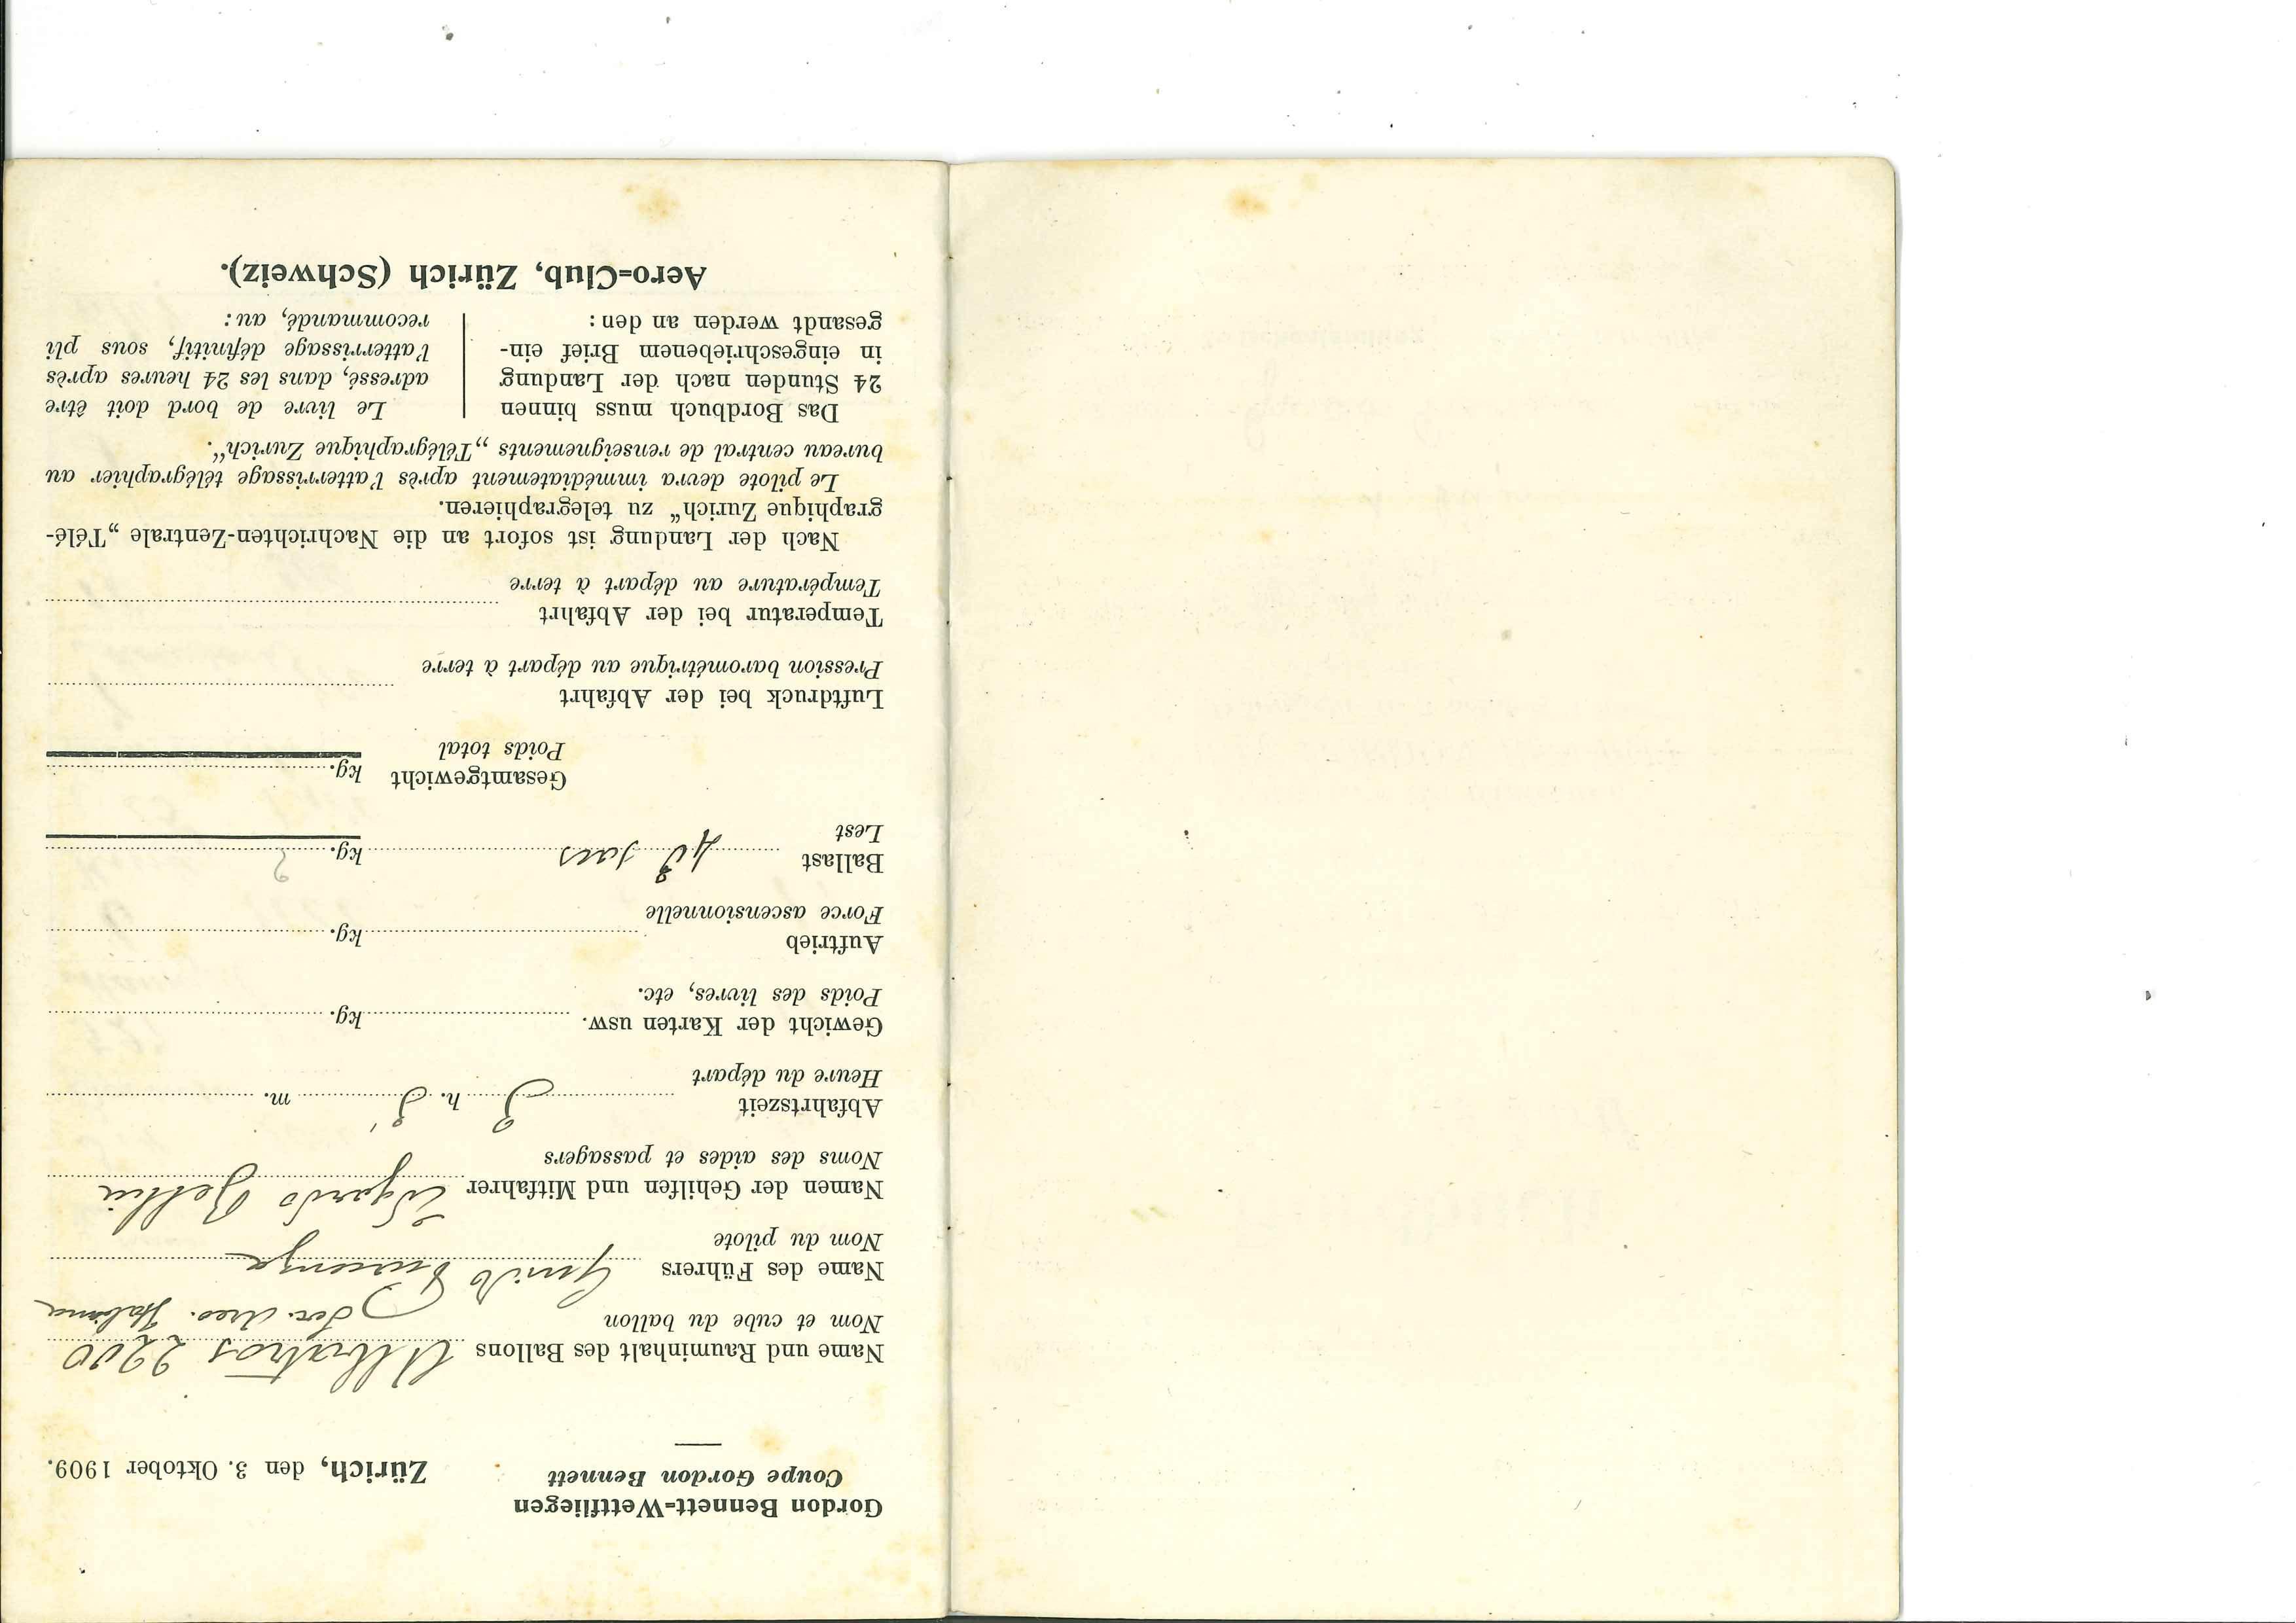 Gordon Bennett=Wettfliegen
Coupe Gordon Bennett
Zürich, den 3. Oktober 1909.
Name und Rauminhalt des Ballons Albatros 2200
Nom et cube du ballon Soc. Aero. Italiana
Name des Führers Guido Piacenza
Nom du pilote
Namen der Gehilfen und Mitfahrer
Noms des aides et passagers
Abfahrtszeit 3 h. 3' m.
Heure du départ
Gewicht der Karten usw. kg.
Poids des livres, etc.
Auftrieb kg.
Force ascensionnelle
Ballast sacs kg. ?
Lest
Gesamtgewicht kg.
Poids total
Luftdruck bei der Abfahrt
Pression barométrique au départ à terre
Temperatur bei der Abfahrt
Température au départ à terre
Nach der Landung ist sofort an die Nachrichten-Zentrale „Télé-
graphique Zurich“ zu telegraphieren.
Le pilote devra immédiatement après l'atterrissage télégraphier au
bureau central de renseignements „Télégraphique Zurich“.
Das Bordbuch muss binnen
24 Stunden nach der Landung
in eingeschriebenem Brief ein-
gesandt werden an den:
Le livre de bord doit être
adressé, dans les 24 heures après
l'atterrissage définitif, sous pli
recommandé, au:
Aero=Club, Zürich (Schweiz).